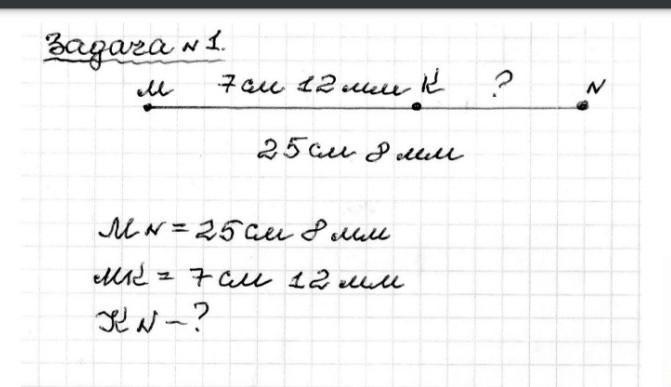 Задача №1.
М 7см 12мм К ? N
25см 8мм
MN = 25см 8мм
МК = 7см 12мм
KN - ?